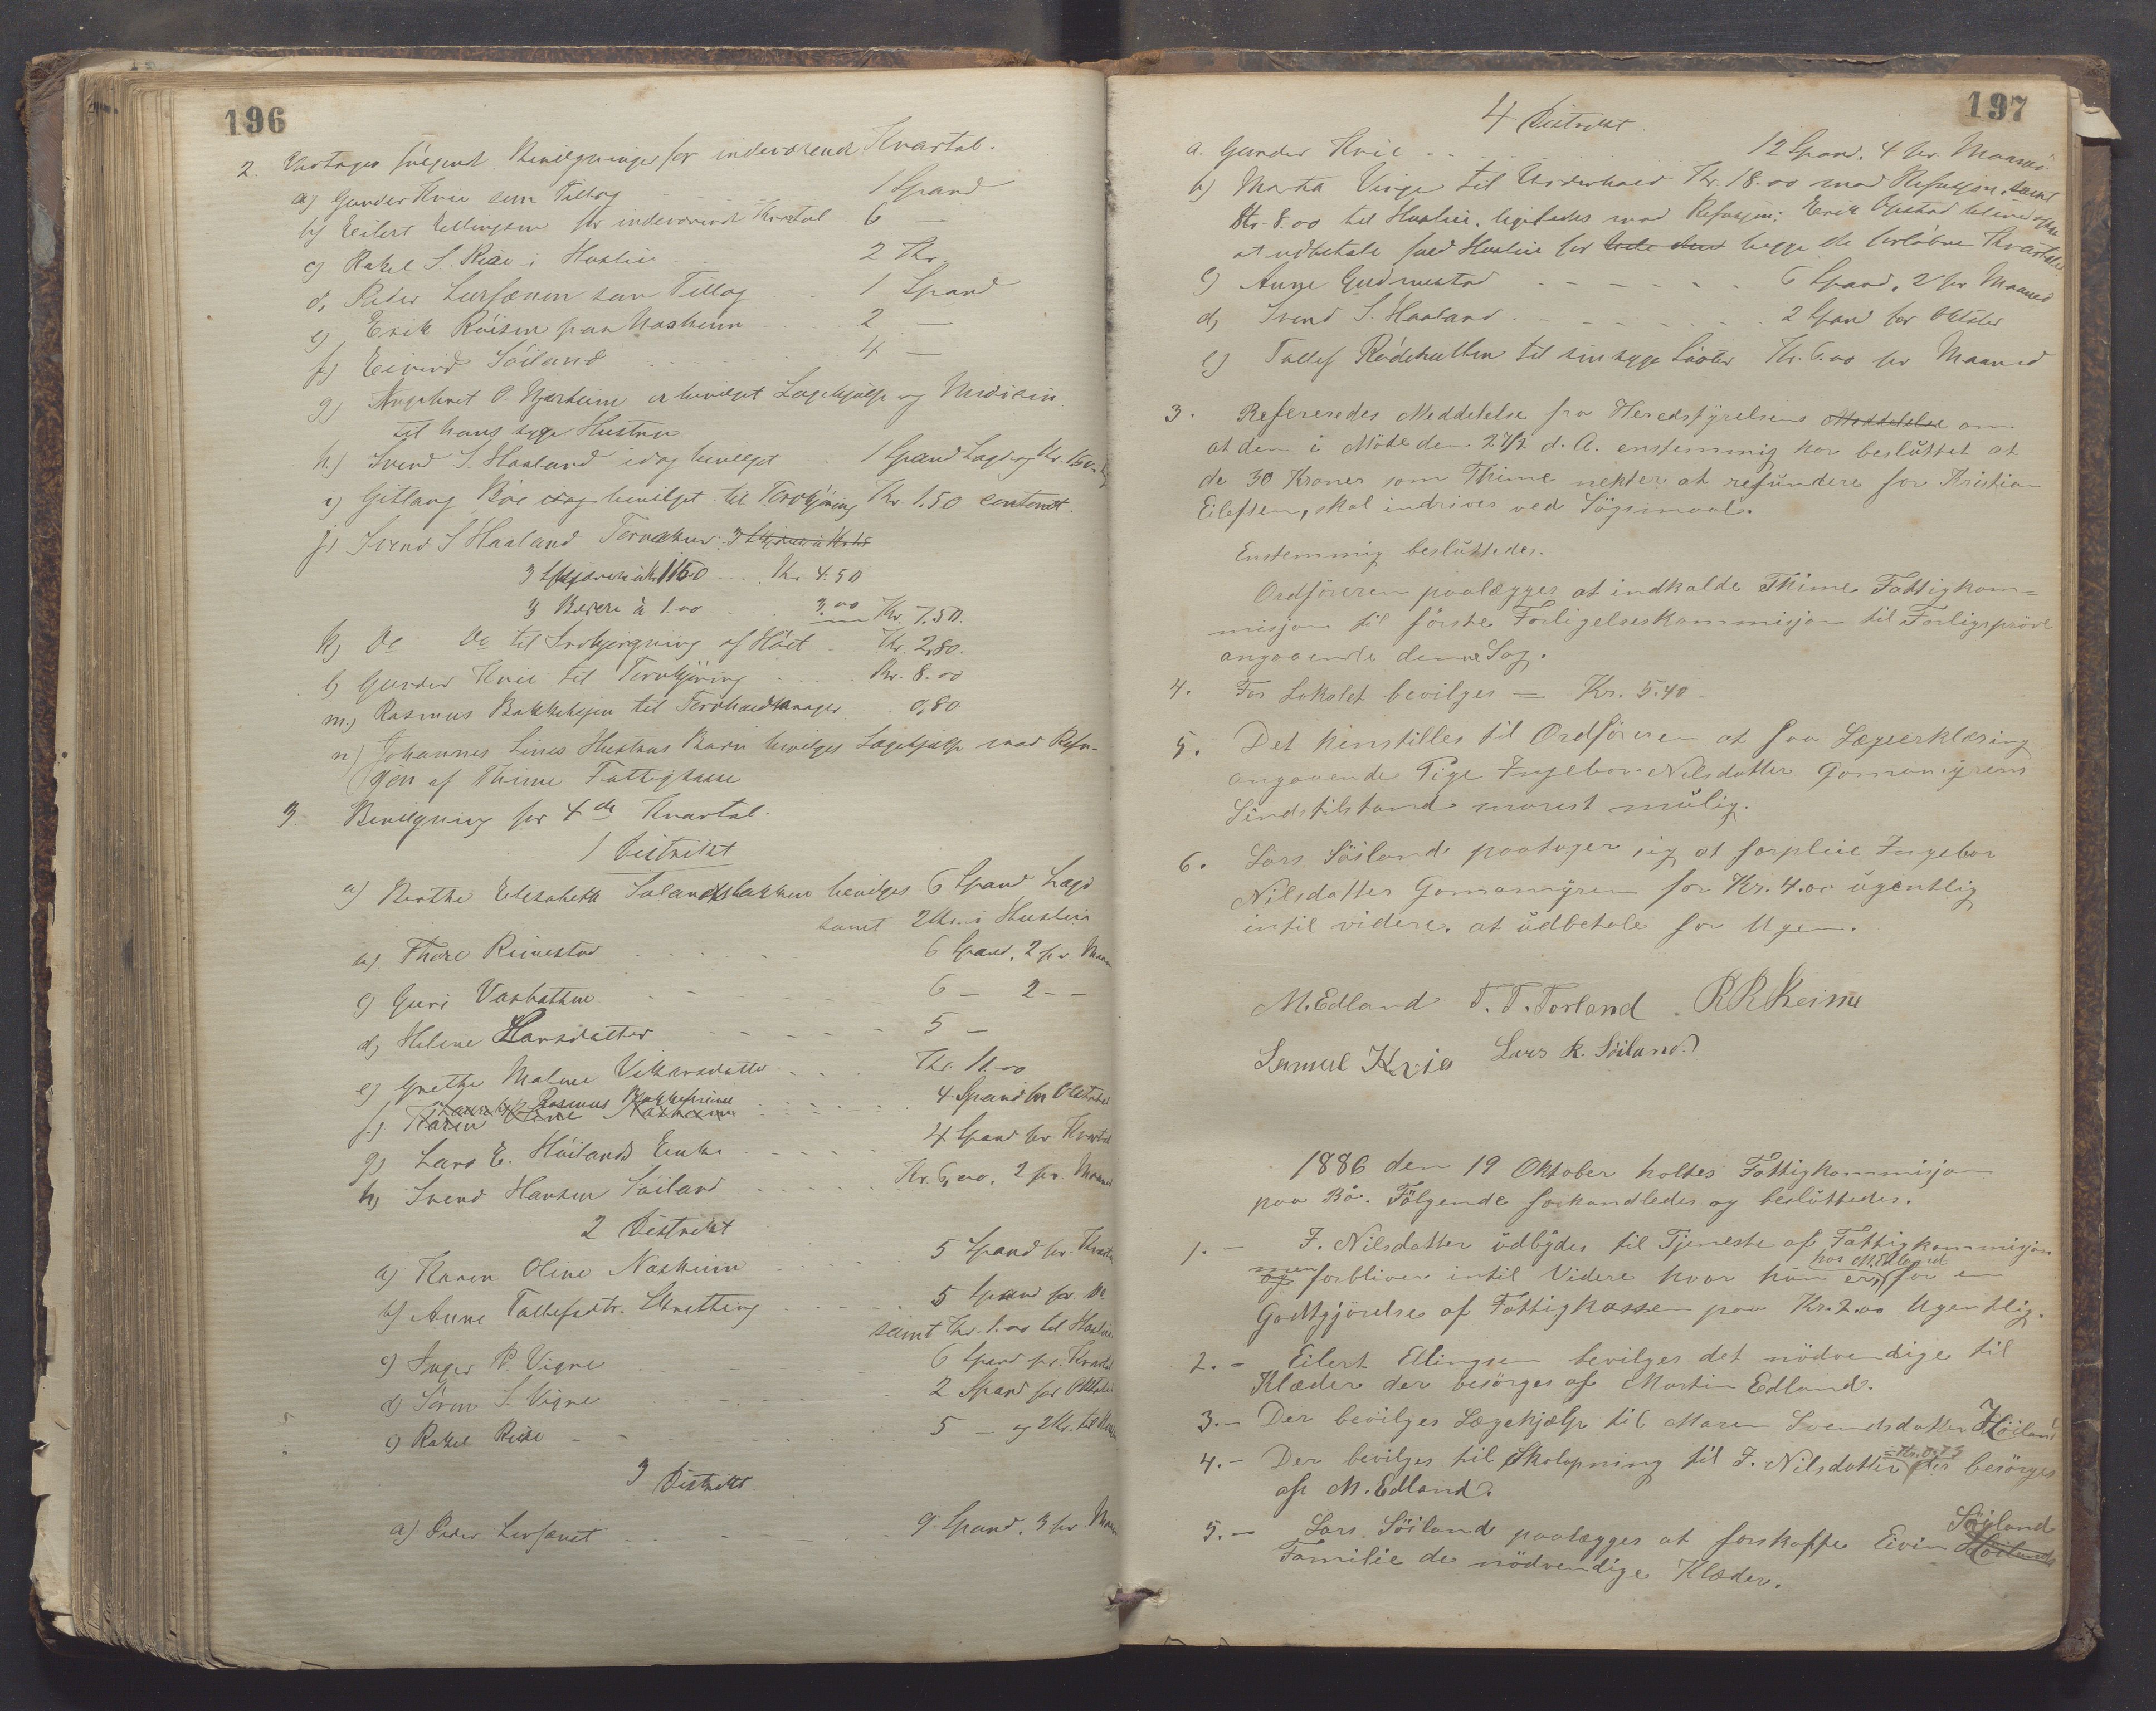 196
2. Vedtages følgende Bevilgninger for indeværende Kvartal.
a) Gunder Kvie som Tillæg 1 Spand
b) Eilert Ellingsen for indeværende Kvartal 6 —
c) Rakel S. Risa i Husleie 2 Kr.
d) Peder sum Tillæg 1 Spand
e) Erik Røisen paa Nærheim 2 —
f) Eivind Söiland 4 —
g) O. Njærheim er bevilget Lægehjælp og Medisin
til hans syge Hustru
h.) Svend S. Haaland idag bevilget 1 Spand
i) Gitlaug Böe idag bevilget til Torvkjøring Kr. 1.50
j) Svend S Haaland
3 à Kr. 1.50 Kr. 4.50
3 Bærere à 1.00 3.00 Kr. 7.50.
k) Do Do til Indbjergning af Höiet Kr. 2,80.
l) Gunder Kvie til Torvkjøring Kr. 8.00
m) Rasmus til 0,80
n) Johannes Lines Hustrus Barn bevilges Lægehjælp mod Refu-
sjon af Thime Fattigkasse
3. Bevilgning for 4de Kvartal.
1 Distrikt
a) Berthe Elisabeth bevilges 6 Spand
samt 2 Kr. i Husleie
b) Thore Rimestad 6 Spand, 2 pr Maan
c) Guri Varhattne 6 — 2 — —
d) Helene Larsdatter 5 —
e) Grethe Malene Kr. 11.00
f) Karen Oline Nærheim Rasmus 4 Spand for Oktober
g) Lars E. Höilands Enke 4 Spand for Kvartal
h) Svend Hansen Söiland Kr. 6,00, 2 pr. Maaned
2 Distrikt
a) Karen Oline Nærheim 5 Spand for Kvartal
b) Anne Tallefsdtr. Skretting 5 Spand for Do
samt Kr. 1.00 til Husleie
c) Inger P. Vigre 6 Spand pr. Kvartal
d) Sören S. Vigre 2 Spand for Oktober
e) Rakel Risa 5 — og 2 Kr. til
3 Distrikt.
a) Peder 9 Spand, 3 pr Maan
197
4 Distrikt.
a. Gunder Kvie 12 Spand. 4 pr Maaned.
b) Marta Vigre til Underhold Kr. 18.00 mod Refusjon, samt
Kr. 8.00 til Husleie, ligeledes mod Refusjon; Erik Opstad
at udbetale for begge de forløbne Kvartaler
c) Anne Gudmestad 6 Spand, 2 pr Maaned
d) Svend S. Haaland 2 Spand for Oktober
e) Tallef til sin syge Datter Kr. 6.00 pr Maaned
3. Refereredes Meddelelse fra Heredstyrelsens Meddelelse om
at den i Möte den 27/2 d. A. enstemmig har besluttet at
de 30 Kroner som Thime nekter at refundere for Kristian
Eilefsen, skal indrives ved Sögsmaal.
Enstemmig besluttedes.
Ordföreren paalægges at indkalde Thime Fattigkom=
misjon til förste Forligelseskommisjon til Forligspröve
angaaende denne Sag.
4. For Lokalet bevilges — Kr. 5.40 —
5. Det henstilles til Ordföreren at faa Lægeerklæring
angaaende Pige Ingebor Nilsdatter Gomamyrens
Sindstilstand snarest mulig.
6. Lars Söiland paatager sig at forpleie Ingebor
Nilsdatter Gomamyren for Kr. 4.00 ugentlig
intil videre. at udbetale for Ugen.
M. Edland T. T. Torland R R Reime
Samuel Kvia Lars R. Söiland.
1886 den 19 Oktober holtes Fattigkommisjon
paa Bö. Fölgende forhandledes og besluttedes.
1. — I. Nilsdatter udbydes til Tjeneste af Fattigkommisjon
og men forbliver intil Videre hvor hun er, hos M. Edland for en
Godtgjörelse af Fattigkassen paa Kr. 2.00 Ugentlig.
2. — Eilert Ellingsen bevilges det nödvendige til
Klæder der besörges af Martin Edland.
3. — Der bevilges Lægehjælp til Maren Svendsdatter Höiland
4. — Der bevilges til Skolapning til I. Nilsdatter = Kr. 0.75 der besörges
af M. Edland.
5. — Lars Söiland paalægges at forskaffe Eivin Höiland Söiland
Familie de nödvendige Klæder.